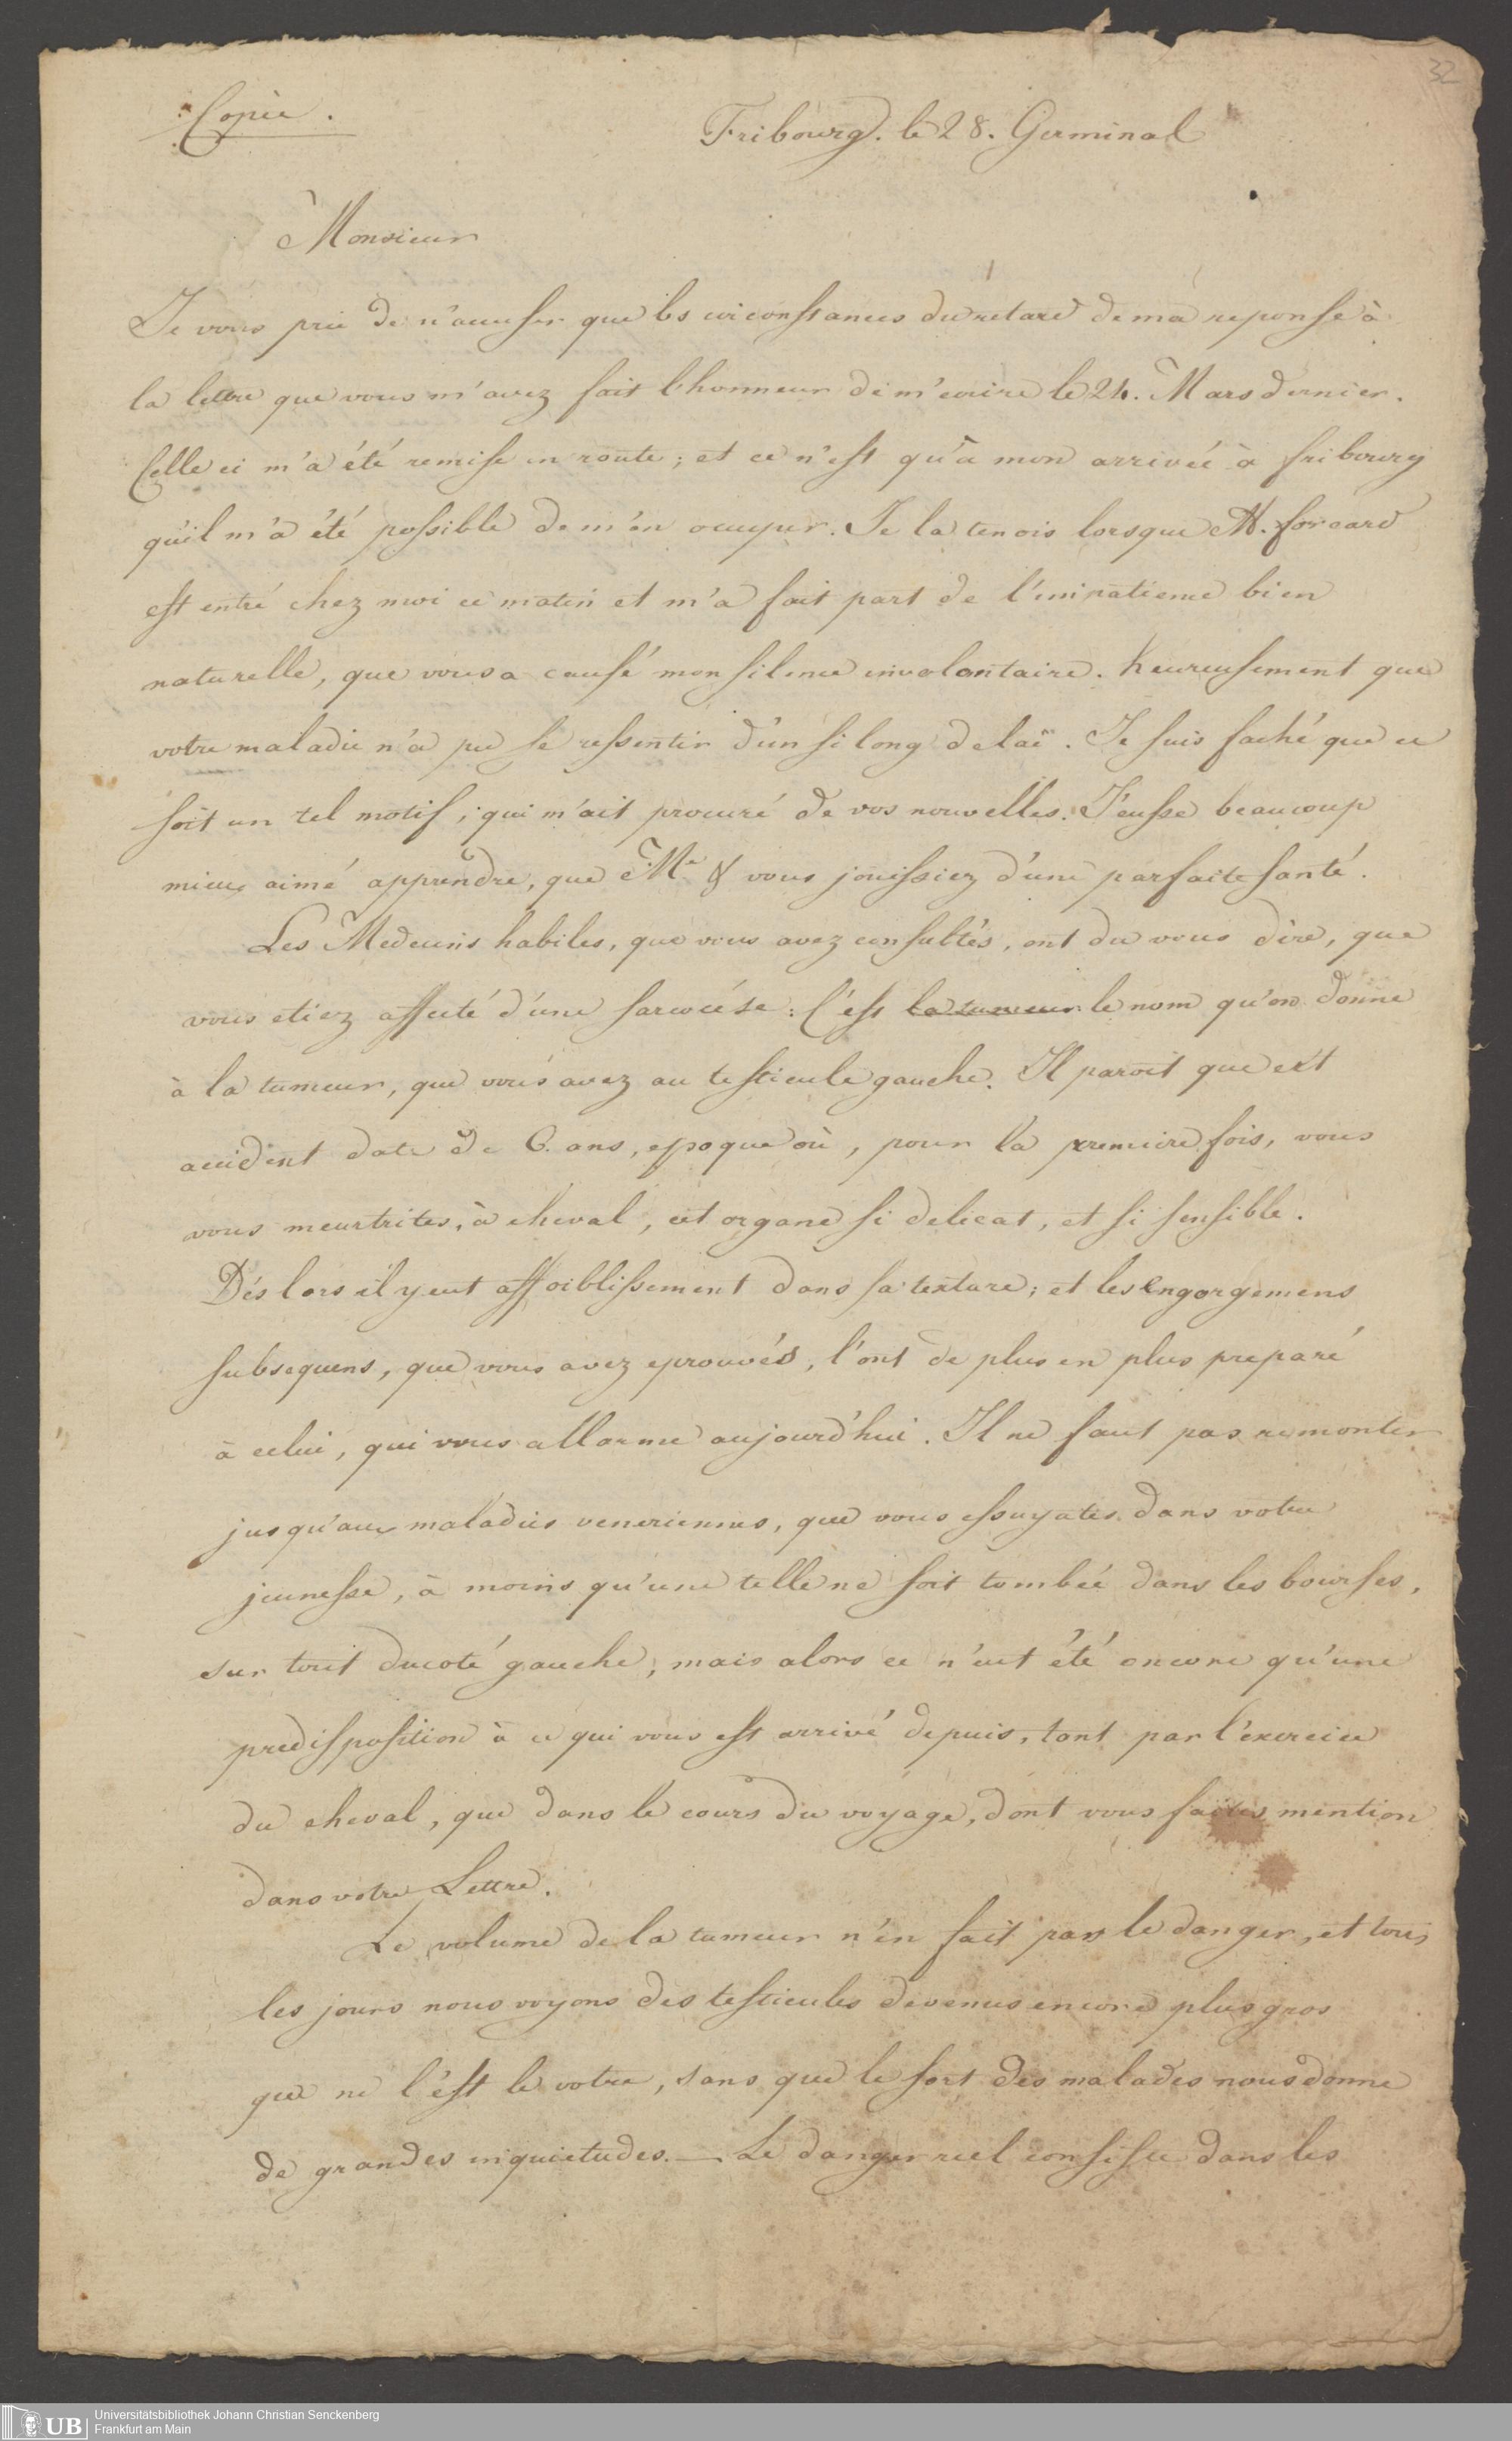 32
Copie.
Fribourg. le 28. Germinal
Monsieur
Je vous prie de n'accuser que les circonstances du retard de ma reponse à
la lettre que vous m'avez fait l'honneur de m'ecrire le 24. Mars dernier.
Celle ci m'a été remise en route; et ce n'est qu'à mon arrivée à fribourg
qu'il m'a été possible de m'en occuper. Je la tenois lorsque M. forcard
est entré chez moi ce matin et m'a fait part de l'impatience bien
naturelle, que vous a causé mon silence involontaire. heureusement que
votre maladie n'a pu se ressentir d'un si long delaï. Je suis faché que ce
soit un tel motif, qui m'ait procuré de vos nouvelles. J'eusse beaucoup
mieux aimé apprendre, que Me & vous jouissiez d'une parfaite santé.
Les Medecins habiles, que vous avez consultés, ont du vous dire, que
vous etiez affecté d'une sarcocéle: C'est la tumeur le nom qu'on donne
à la tumeur, que vous avez au testicule gauche. Il paroit que cet
accident date de 6. ans, epoque où, pour la premiere fois, vous
vous meurtrites, à cheval, cet organe si delicat, et si sensible.
Dés lors il y eut affoiblissement dans sa texture; et les engorgemens
subsequens, que vous avez eprouvés, l'ont de plus en plus preparé
à celui, qui vous allarme aujourd'hui. Il ne faut pas remonter
jusqu'aux maladies veneriennes, que vous essuyates dans votre
jeunesse, à moins qu'une telle ne soit tombée dans les bourses,
sur tout du coté gauche; mais alors ce n'eut été encore qu'une
predisposition à ce qui vous est arrivé depuis, tant par l'exercice
du cheval, que dans le cours du voyage, dont vous faites mention
dans votre Lettre.
Le volume de la tumeur n'en fait pas le danger, et tous
les jours nous voyons des testicules devenus encore plus gros
que ne l'est le votre, sans que le sort des malades nous donne
de grandes inquietudes. — Le danger réel consiste dans les
UB
Universitätsbibliothek Johann Christian Senckenberg
Frankfurt am Main